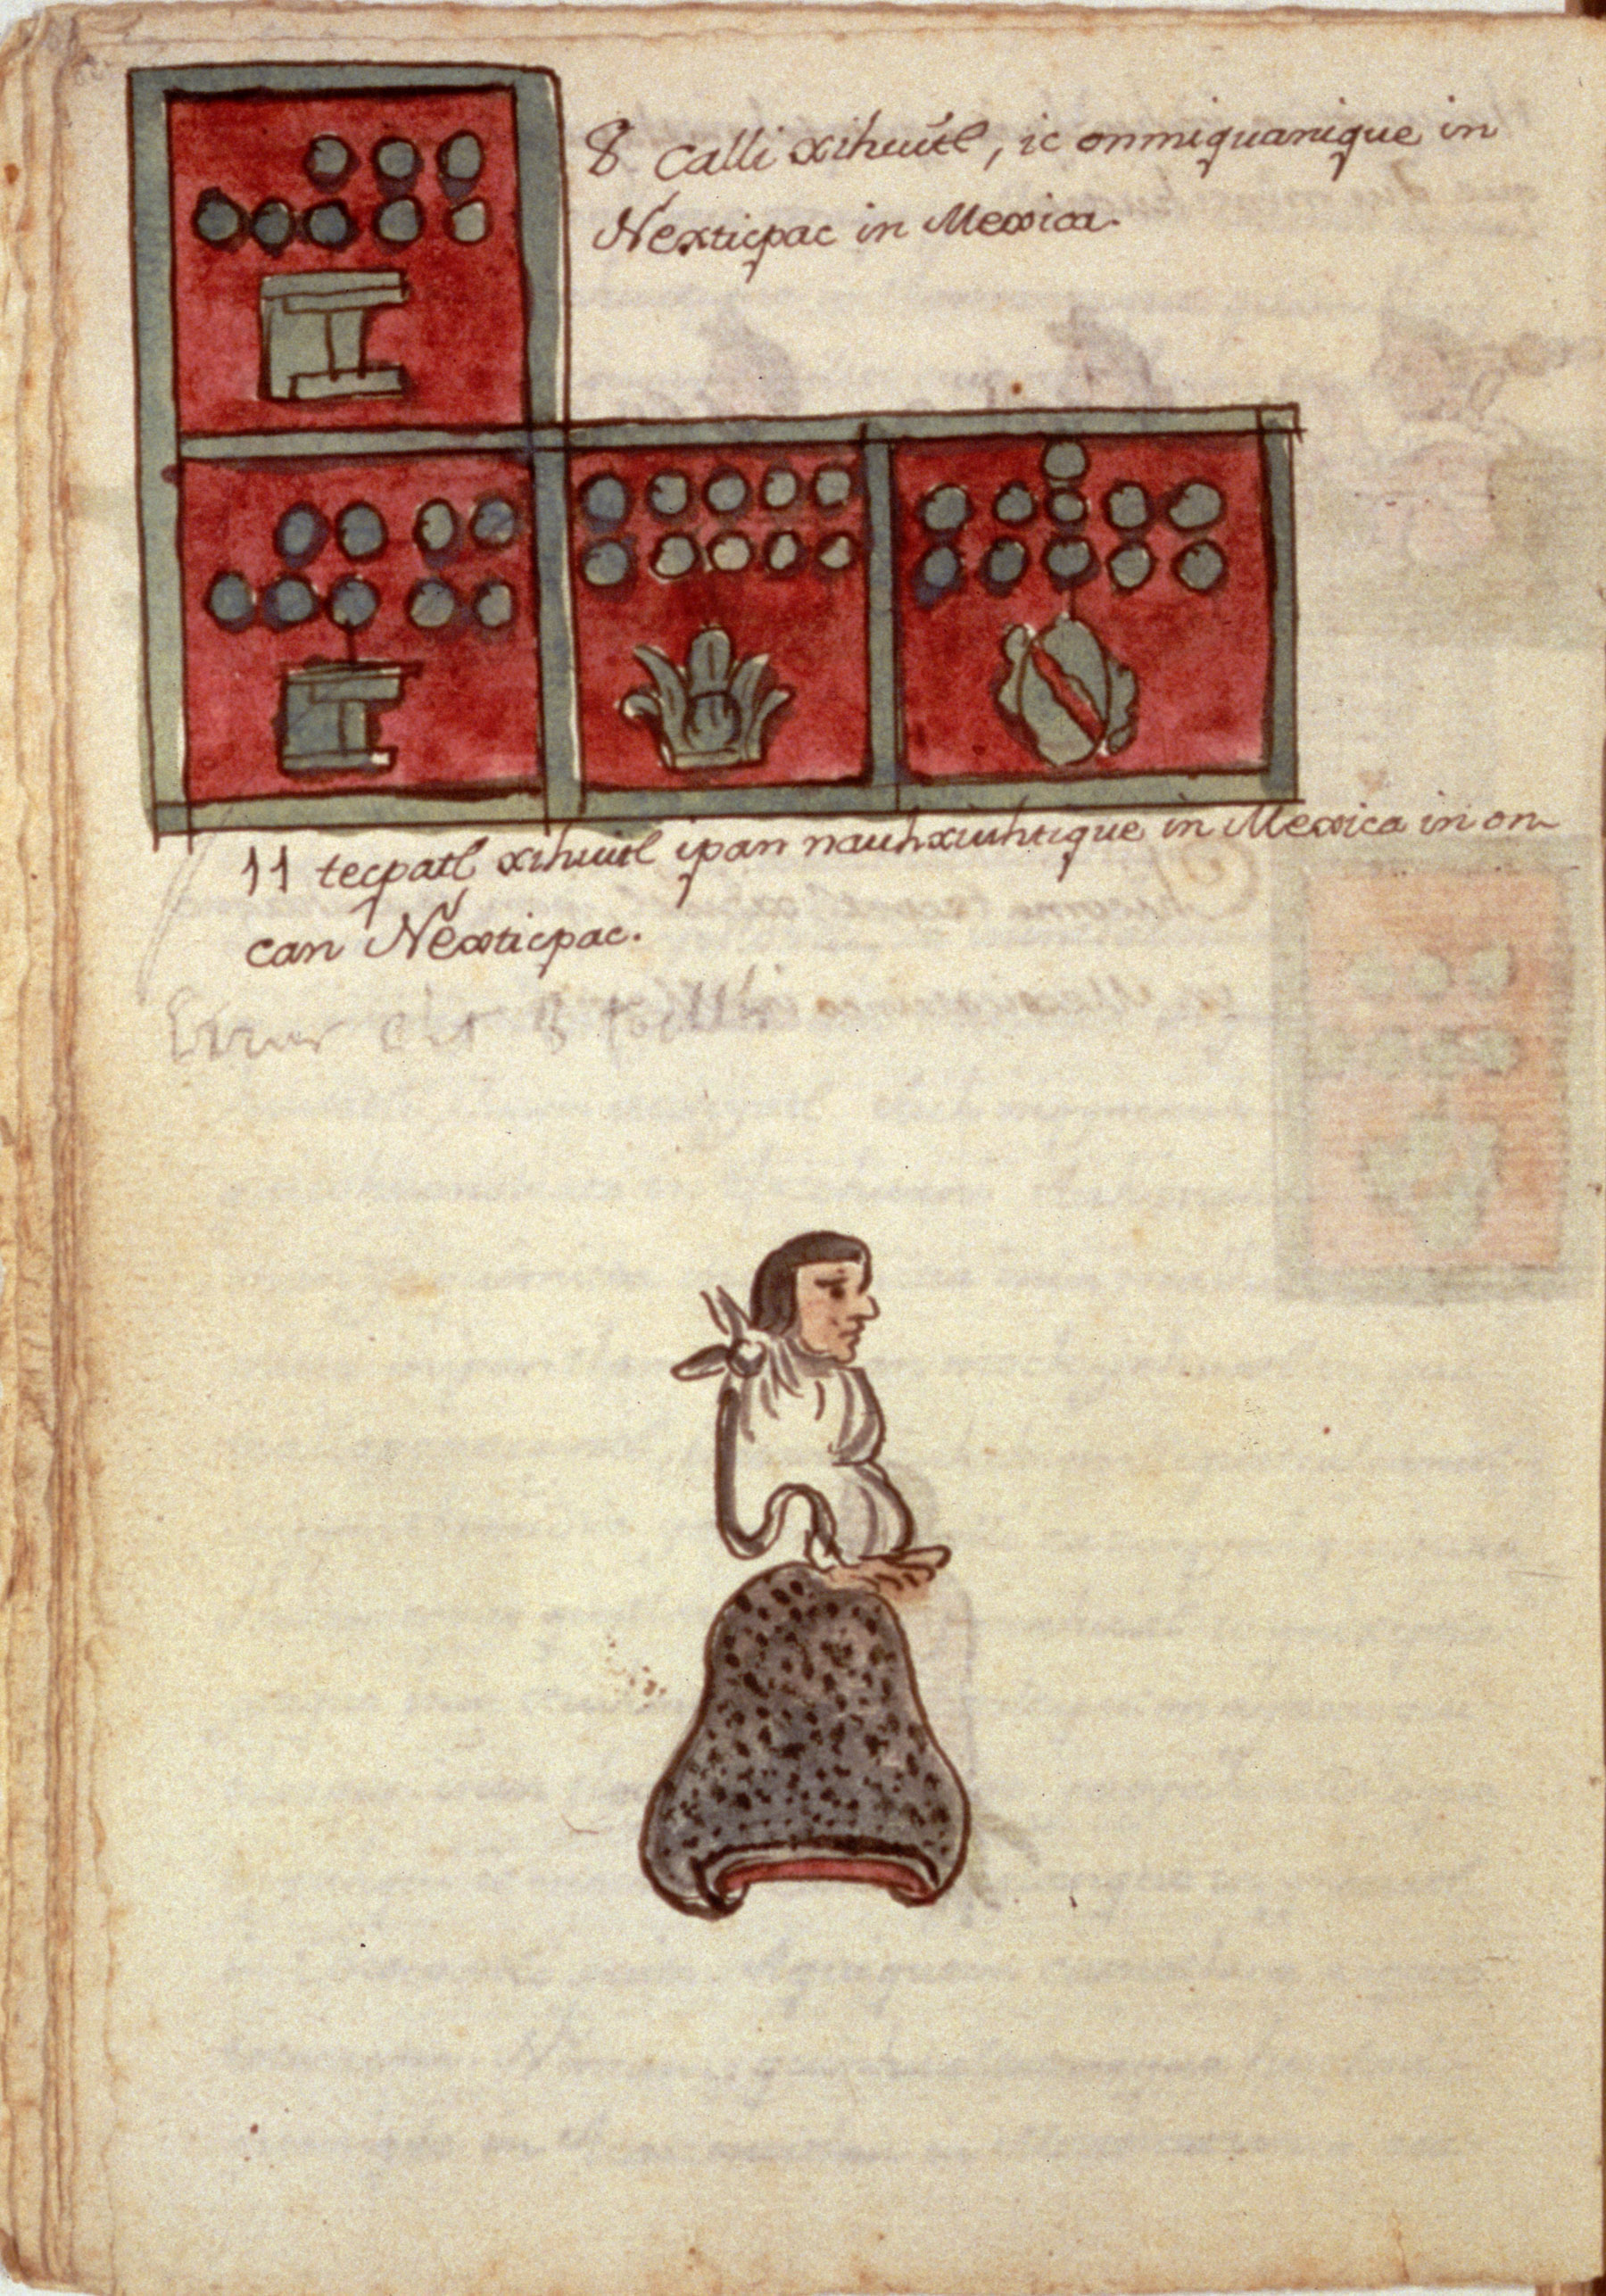 8 calli xihuitl, ic onmiquanique in
Nexticpac in Mexica.
11 tecpatl xihuitl ipan nauhxiuhtique in Mexica in on-
can Nexticpac.
Error est